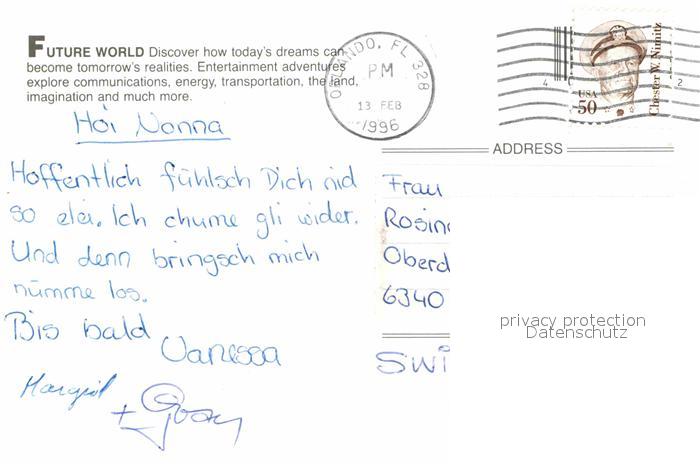 FUTURE WORLD Discover how today's dreams can
become tomorrow's realities. Entertainment adventures
explore communications, energy, transportation, the land,
imagination and much more.
ORLANDO, FL 328
PM
13 FEB
1996
USA
50
Chester W. Nimitz
4
2
Hoi Nonna
ADDRESS
Hoffentlich fühlsch Dich nid
so elei. Ich chume gli wider.
Und denn bringsch mich
nümme los.
Bis bald
Vanessa
Margrit
+
Frau
Rosin
Oberd
6340
SWI
privacy protection
Datenschutz